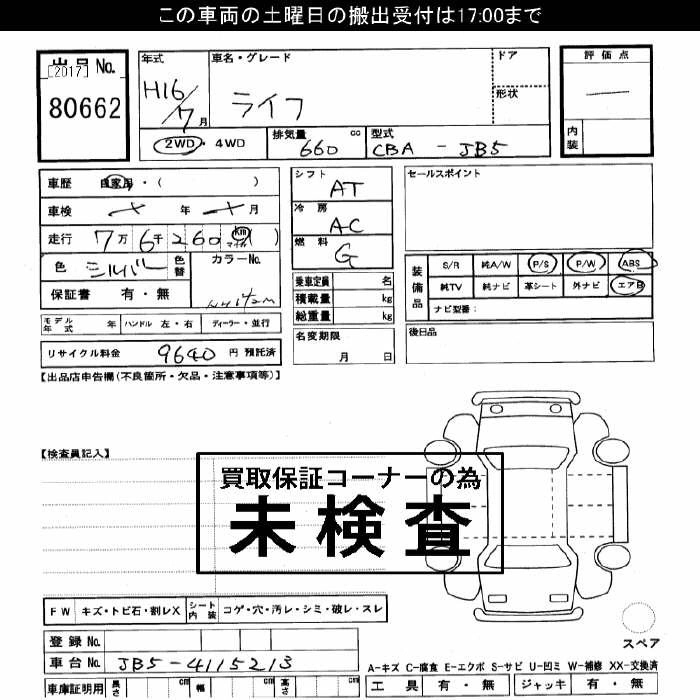 この車両の土曜日の搬出受付は17:00まで
出品No.
[2017]
80662
年式
H16/7月
車名・グレード
ライフ
ドア
形状
評価点
内装
2WD・4WD
排気量 660 cc
型式 CBA - JB5
車歴 自家用・( )
車検 年 月
走行 7万6千260 km マイル ( )
色 シルバー 色替
カラーNo.
保証書 有・無
モデル年式 年 ハンドル 左・右 ディーラー・並行
リサイクル料金 9640 円 預託済
シフト AT
冷房 AC
燃料 G
乗車定員 名
積載量 kg
総重量 kg
名変期限
月 日
セールスポイント
装備品
S/R 純A/W P/S P/W ABS
純TV 純ナビ 革シート 外ナビ エアB
ナビ型番:
後日品
【出品店申告欄(不良箇所・欠品・注意事項等)】
【検査員記入】
買取保証コーナーの為
未検査
FW キズ・トビ石・割レX シート内装 コゲ・穴・汚レ・シミ・破レ・スレ
登録No.
車台No. JB5-4115213
車庫証明用 長さ cm 幅 cm 高さ cm
スペア
A-キズ C-腐食 E-エクボ S-サビ U-凹ミ W-補修 XX-交換済
工具 有・無 ジャッキ 有・無